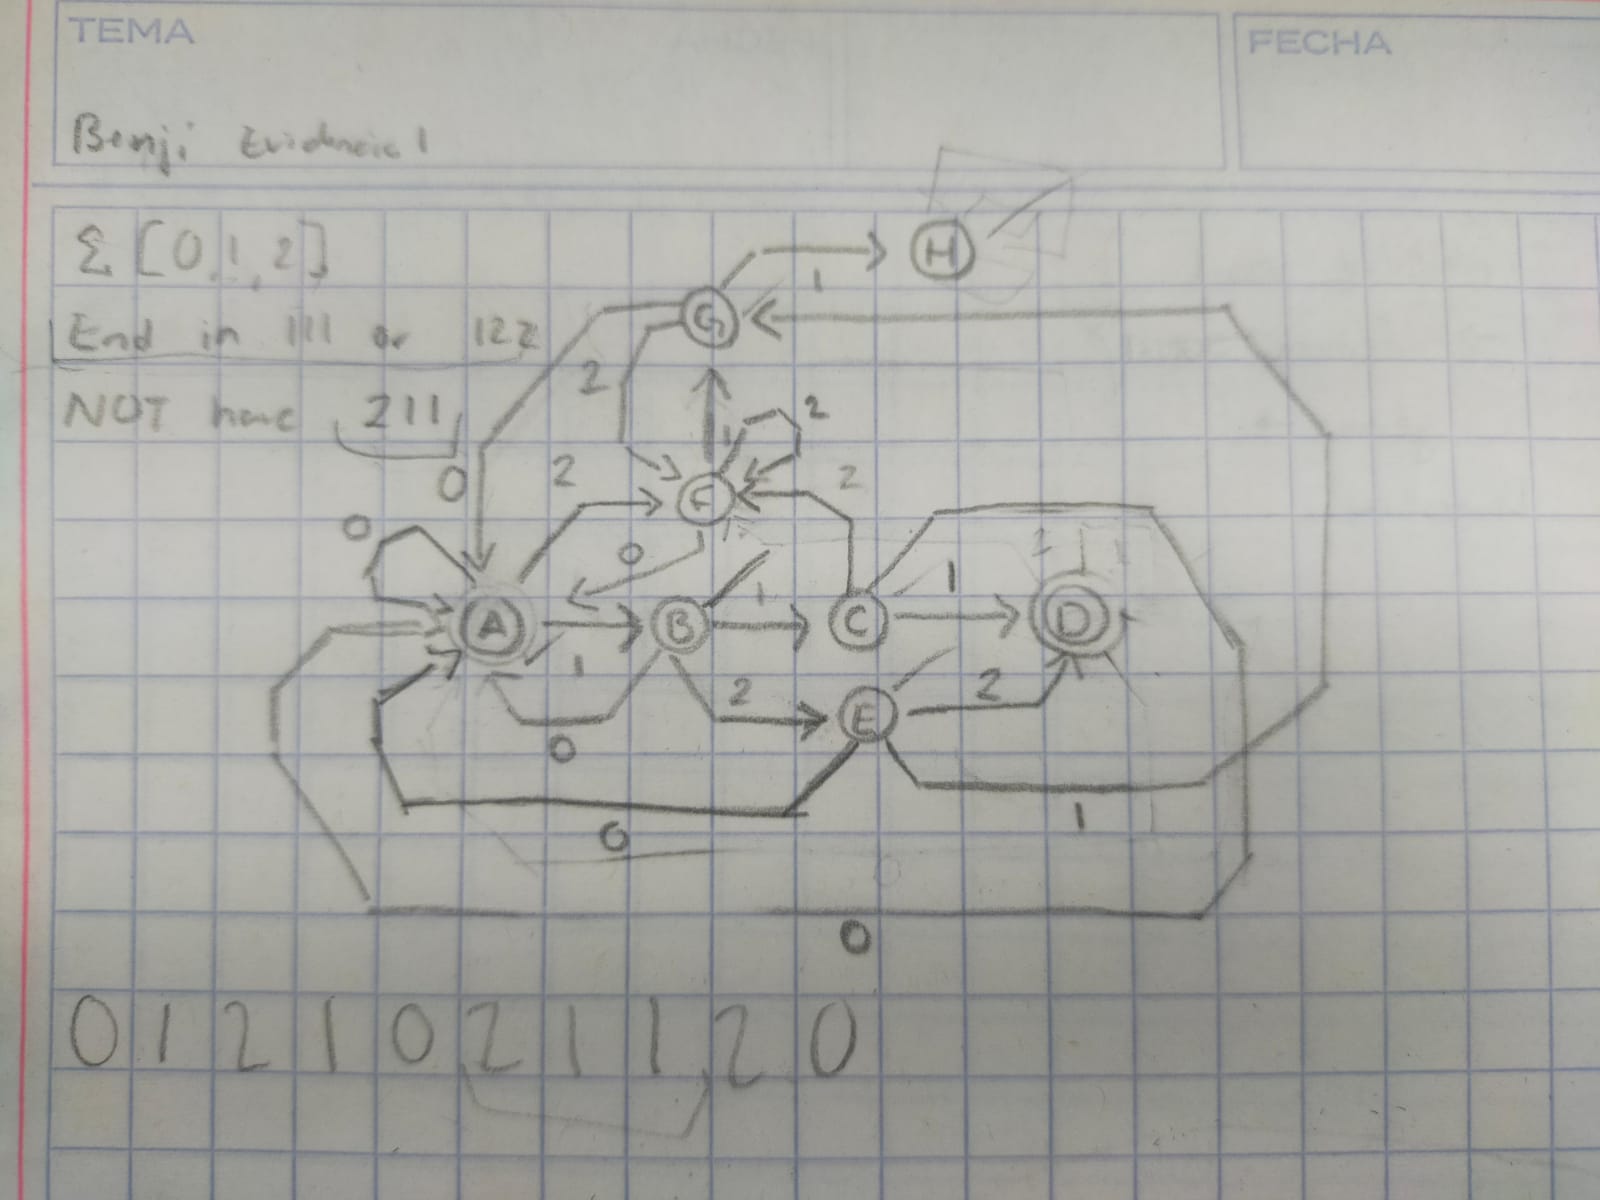 TEMA
FECHA
Benji Evidencia 1
Σ [0,1,2]
End in 111 or 122
NOT have 211
H
1
G
2
1
2
0
2
F
2
0
0
1
1
A
B
C
D
1
2
E
2
0
1
0
0
0121021120